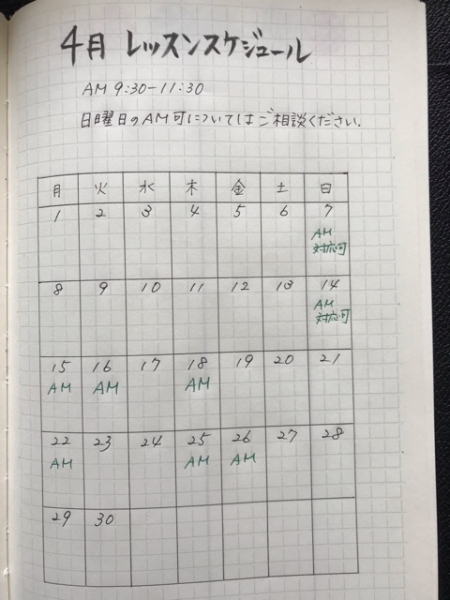 4月 レッスンスケジュール
AM 9:30-11:30
日曜日のAM可についてはご相談ください.
月 火 水 木 金 土 日
1 2 3 4 5 6 7
AM
対応可
8 9 10 11 12 13 14
AM
対応可
15 16 17 18 19 20 21
AM AM AM
22 23 24 25 26 27 28
AM AM AM
29 30